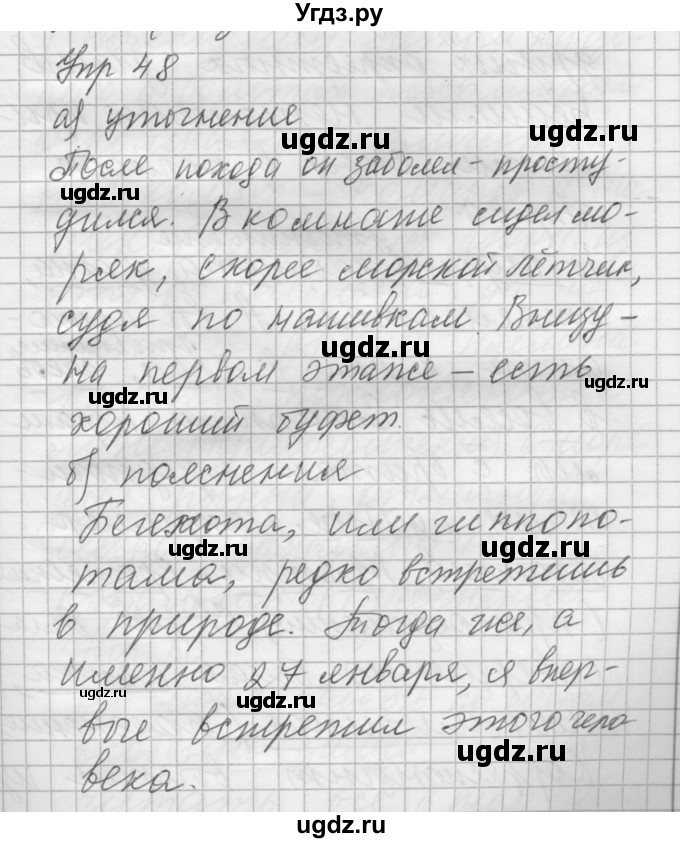 Угдз.ру
Упр 48
а) уточнение
ugdz.ru
После похода он заболел - просту-
ugdz.ru
дился. В комнате сидел мо-
ugdz.ru
ряк, скорее морской лётчик,
судя по нашивкам. Внизу -
ugdz.ru
на первом этаже - есть
ugdz.ru
хороший буфет.
б) пояснения
Бегемота, или гиппопо-
ugdz.ru ugdz.ru
тама, редко встретишь
в природе. Тогда же, а
именно 27 января, я впер-
ugdz.ru ugdz.ru
вые встретил этого чело
ugdz.ru
века.
ugdz.ru